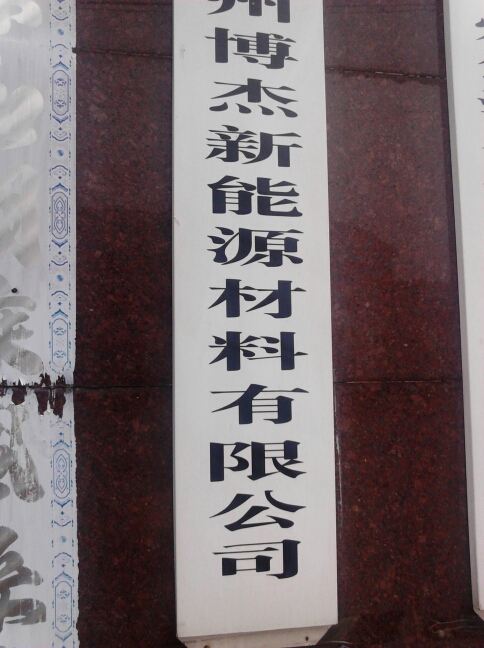 州博杰新能源材料有限公司